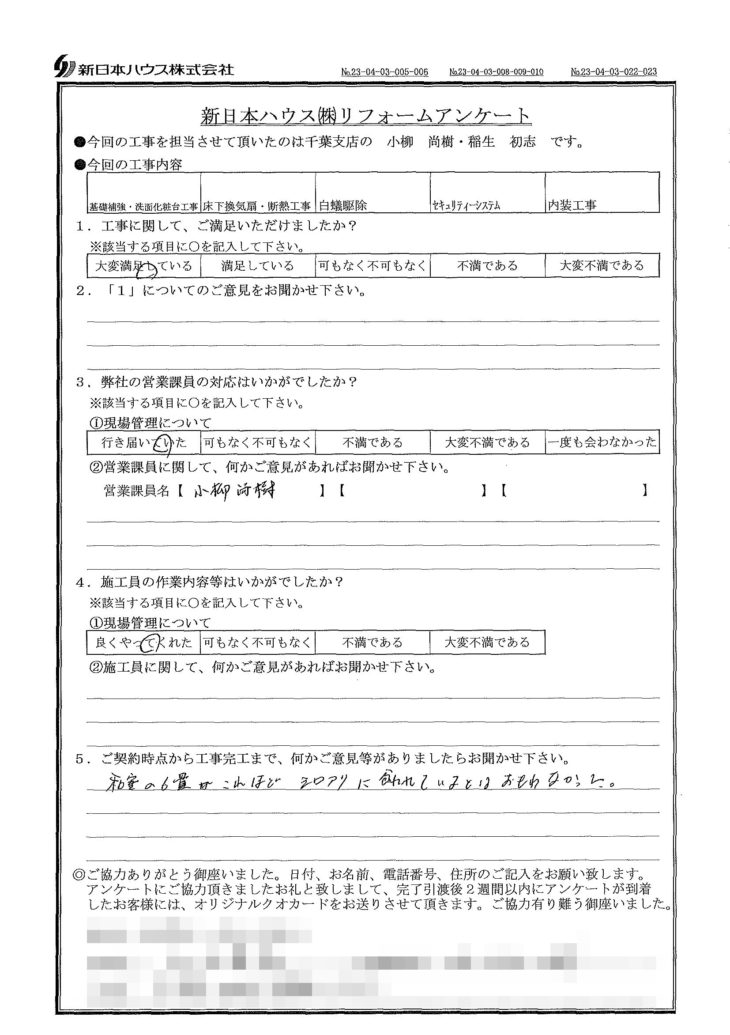 新日本ハウス株式会社
No.23-04-03-005-006 No.23-04-03-008-009-010 No.23-04-03-022-023
新日本ハウス㈱リフォームアンケート
●今回の工事を担当させて頂いたのは千葉支店の 小柳 尚樹・稲生 初志 です。
●今回の工事内容
基礎補強・洗面化粧台工事 床下換気扇・断熱工事 白蟻駆除 ｾｷｭﾘﾃｨｰｼｽﾃﾑ 内装工事
1．工事に関して、ご満足いただけましたか？
※該当する項目に○を記入して下さい。
大変満足している 満足している 可もなく不可もなく 不満である 大変不満である
2．「1」についてのご意見をお聞かせ下さい。
3．弊社の営業課員の対応はいかがでしたか？
※該当する項目に○を記入して下さい。
①現場管理について
行き届いていた 可もなく不可もなく 不満である 大変不満である 一度も会わなかった
②営業課員に関して、何かご意見があればお聞かせ下さい。
営業課員名【 小柳尚樹 】【 】【 】
4．施工員の作業内容等はいかがでしたか？
※該当する項目に○を記入して下さい。
①現場管理について
良くやってくれた 可もなく不可もなく 不満である 大変不満である
②施工員に関して、何かご意見があればお聞かせ下さい。
5．ご契約時点から工事完工まで、何かご意見等がありましたらお聞かせ下さい。
和室の6畳がこれほどシロアリに食われているとはおもわなかった。
◎ご協力ありがとう御座いました。日付、お名前、電話番号、住所のご記入をお願い致します。
アンケートにご協力頂きましたお礼と致しまして、完了引渡後2週間以内にアンケートが到着
したお客様には、オリジナルクオカードをお送りさせて頂きます。ご協力有り難う御座いました。